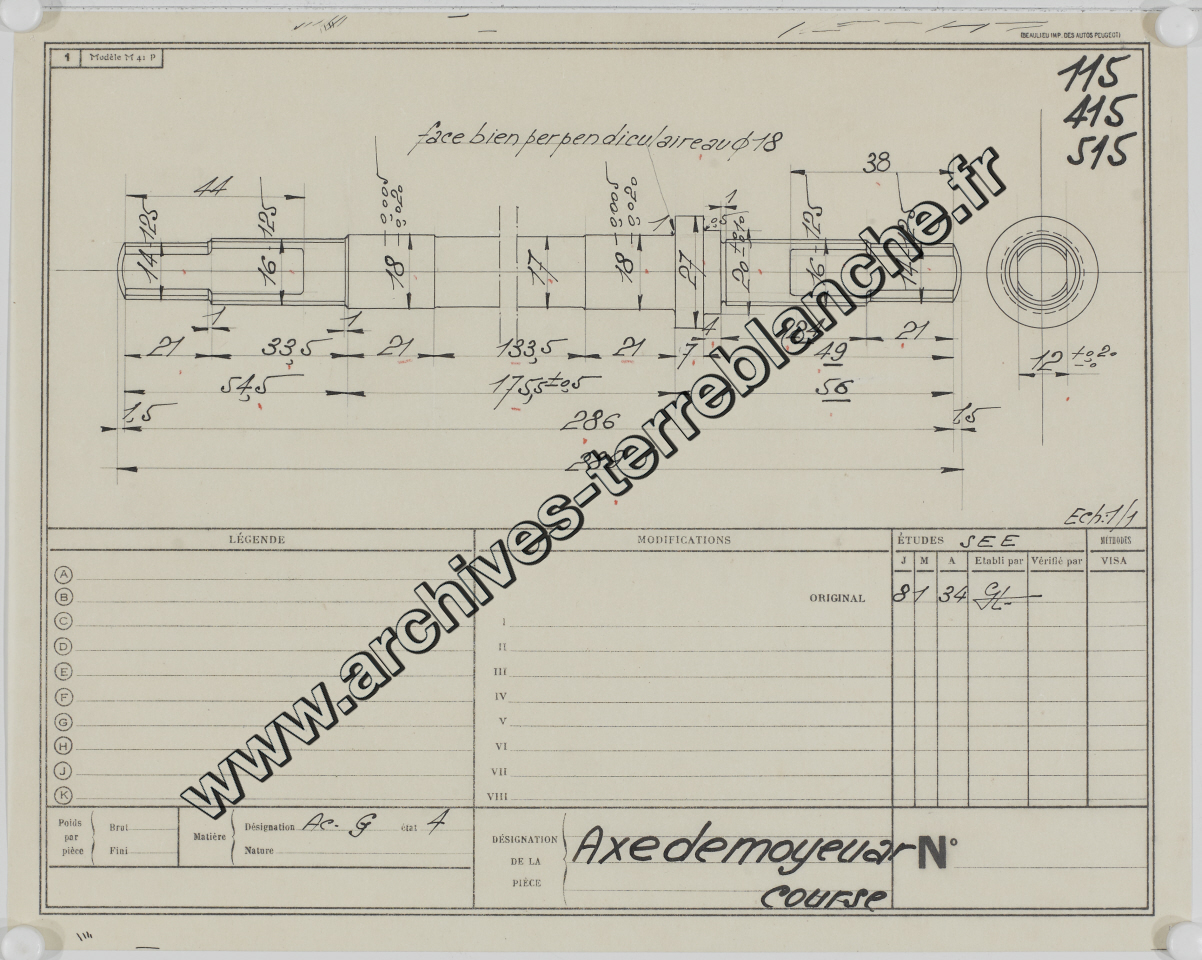 (BEAULIEU IMP. DES AUTOS PEUGEOT)
1 Modèle M 41 P
115
415
515
face bien perpendiculaire au ϕ 18
44
38
125
125
-0,005
-0,020
-0,005
-0,020
1
0,5
1
125
14
16
18
17
18
27
20
16
1
1
21
33,5
21
133,5
21
7
4
21
49
54,5
175,5 ±0,5
56
12 +0,20
-0
1,5
286
1,5
www.archives-terreblanche.fr
Ech: 1/1
LÉGENDE
MODIFICATIONS
ÉTUDES SEE
MÉTHODES
J M A Etabli par Vérifié par VISA
ORIGINAL 8 1 34
A
B
C
D
E
F
G
H
J
K
I
II
III
IV
V
VI
VII
VIII
Poids par pièce
Brut
Fini
Matière
Désignation Ac. G état 4
Nature
DÉSIGNATION DE LA PIÈCE
Axe de moyeu ar
course
N°